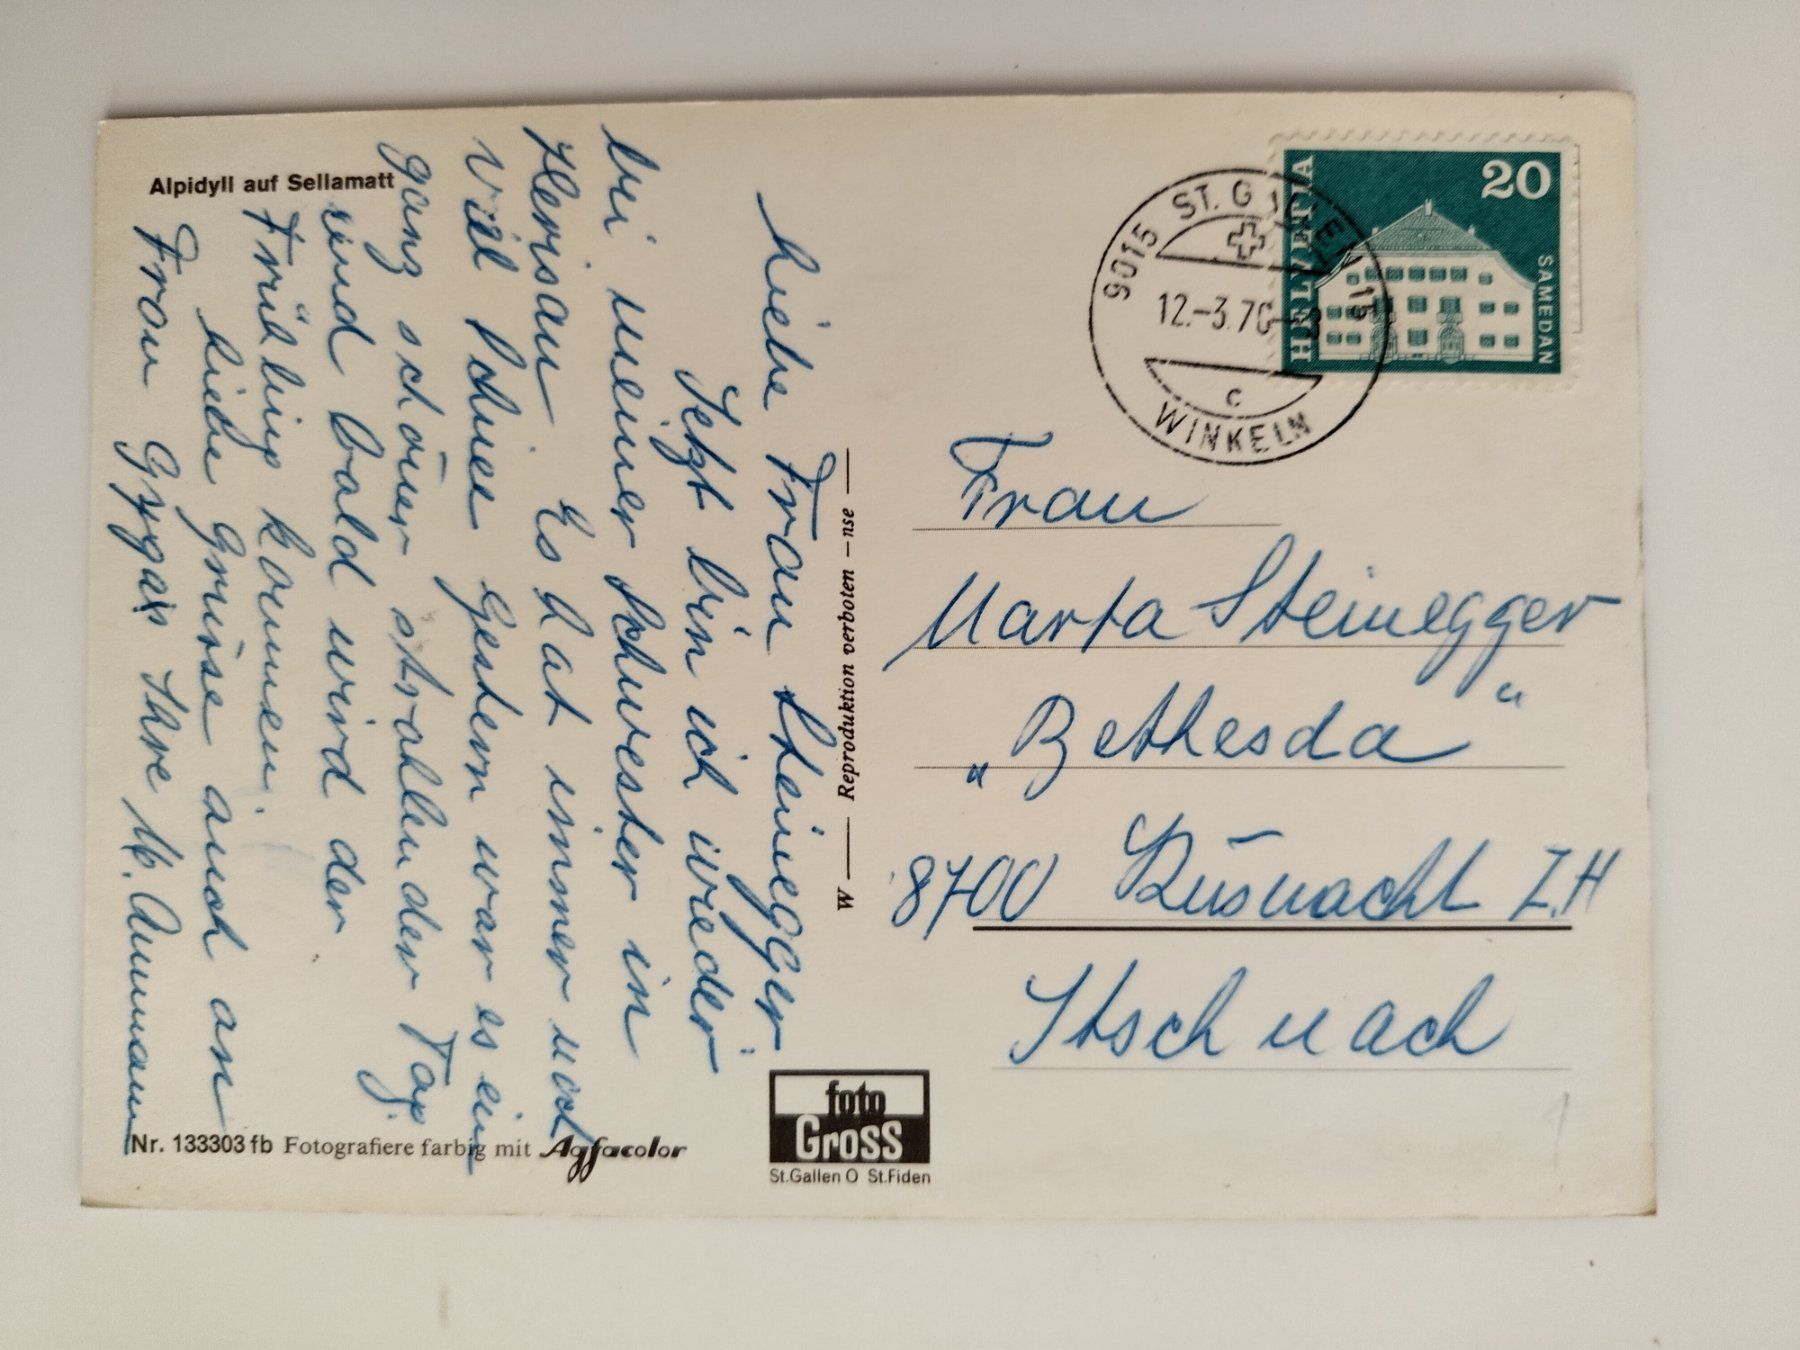 Alpidyll auf Sellamatt
Liebe Frau Steinegger
Jetzt bin ich wieder
bei meiner Schwester in
Herisau Es hat immer noch
viel Schnee Gestern war es ein
ganz schöner strahlender Tag.
und bald wird der
Frühling kommen.
Liebe Grüsse auch an
Frau Gygax Ihre M. Ammann
Nr. 133303 fb Fotografiere farbig mit Agfacolor
W — Reproduktion verboten – nse —
foto
Gross
St.Gallen O St.Fiden
9015 ST. GALLEN 15
12.-3.70
c
WINKELN
HELVETIA
20
SAMEDAN
Frau
Marta Steinegger
„Bethesda"
8700 Küsnacht Z.H
Itschnach